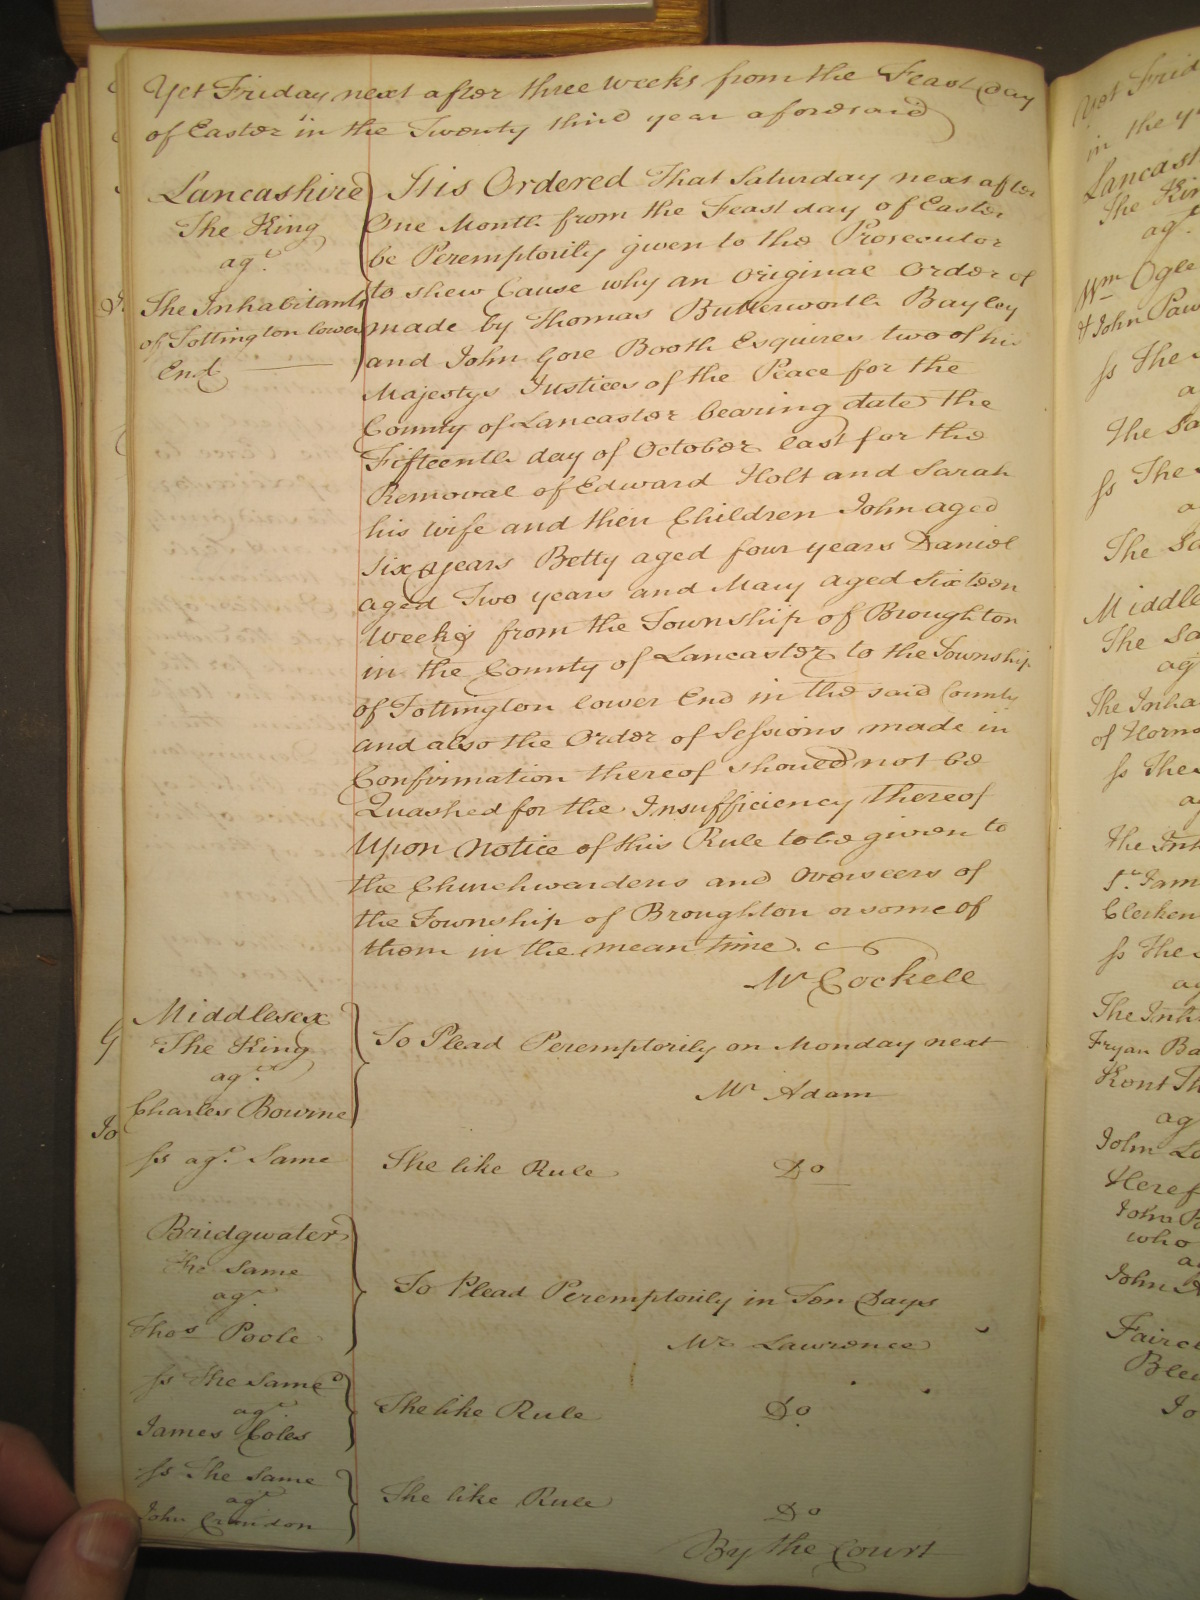 Yet Friday next after three weeks from the Feast Day
of Easter in the Twenty third year aforesaid
Lancashire
The King
agt
The Inhabitants
of Tottington lower
End
It is Ordered That Saturday next after
One Month from the Feast day of Easter
be Peremptorily given to the Prosecutor
to shew Cause why an Original Order of
made by Thomas Butterworth Bayley
and John Gore Booth Esquires two of his
Majestys Justices of the Peace for the
County of Lancaster bearing date the
Fifteenth day of October last for the
Removal of Edward Holt and Sarah
his wife and their Children John aged
Six years Betty aged four years Daniel
aged Two years and Mary aged Sixteen
Weeks from the Township of Broughton
in the County of Lancaster to the Township
of Tottington lower End in the said County
and also the Order of Sessions made in
Confirmation thereof should not be
Quashed for the Insufficiency thereof
Upon Notice of this Rule to be given to
the Churchwardens and Overseers of
the Township of Broughton or some of
them in the mean time.
Mr Cockell
Middlesex
G The King
agt
Charles Bourne
To Plead Peremptorily on Monday next
Mr Adam
Jo
ss agt Same
The like Rule Do
Bridgwater
The Same
agt
Thos Poole
To Plead Peremptorily in Ten Days
Mr Lawrence
ss The Same
agt
James Coles
The like Rule Do
ss The Same
agt
John Crandon
The like Rule Do
By the Court
Yet Frid
in the y
Lancast
The Kin
agt
Wm Ogle
& John Paw
ss The
a
The Sa
ss The
a
The Sa
Middle
The Sa
agt
The Inha
of Horns
ss The
ag
The Inh
St Jam
Clerken
ss The
ag
The Inh
Fryan Ba
Kent Th
ag
John Lo
Heref
John
who
a
John
Fairc
Blew
Jo